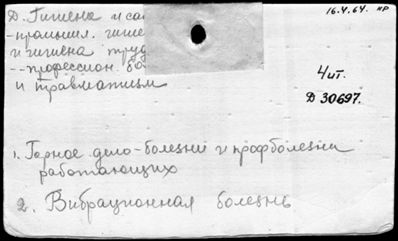 16.4.64. нр
Д. Гигиена и сан
-промышл. гигие
и гигиена труд
--профессион. бо
и травматизм
4 ит.
Д 30697.
1. Горное дело-болезни и профболезни
работающих
2. Вибрационная болезнь